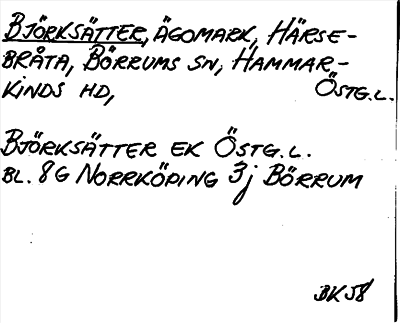 BJÖRKSÄTTER, ÄGOMARK, HÄRSE-
BRÅTA, BÖRRUMS SN, HAMMAR-
KINDS HD, ÖSTG.L.
BJÖRKSÄTTER EK ÖSTG.L.
BL. 8G NORRKÖPING 3j BÖRRUM
BK58